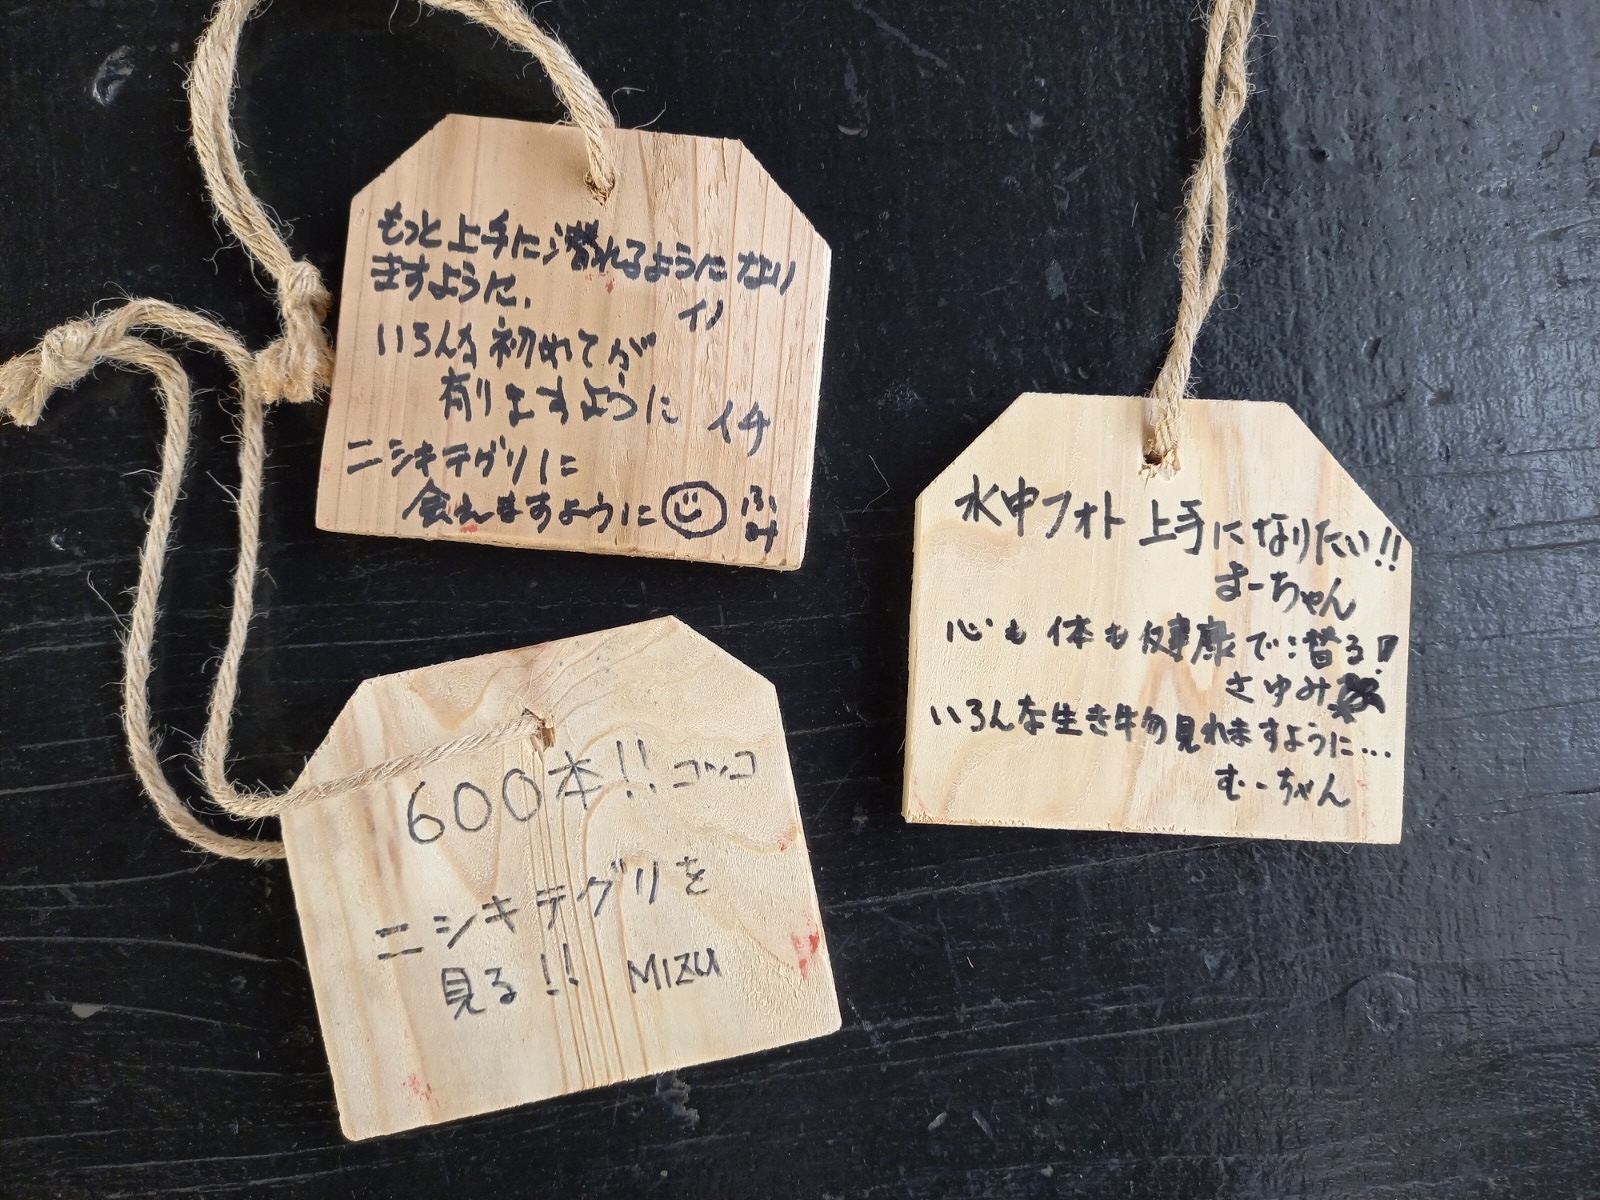 もっと上手に潜れるようになり
ますように、
イノ
いろんな初めてが
有りますように
イチ
ニシキテグリに
会えますように
ふみ
600本!! コッコ
ニシキテグリを
見る!! MIZU
水中フォト上手になりたい!!
まーちゃん
心も体も健康で潜る!
さゆみ
いろんな生き物見れますように...
むーちゃん